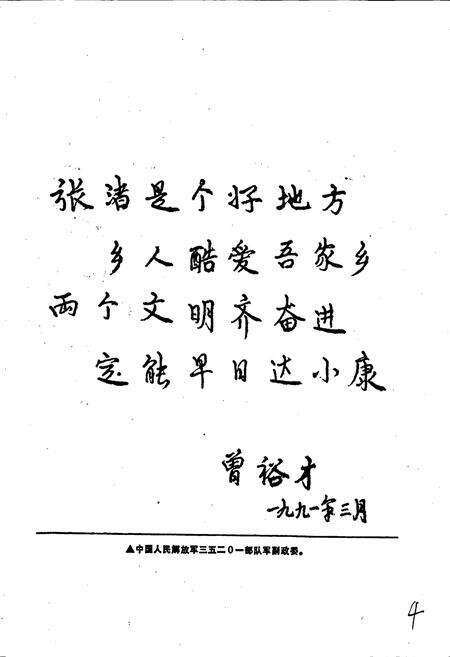 张渚是个好地方
乡人酷爱吾家乡
两个文明齐奋进
定能早日达小康
曾裕才
一九九一年三月
▲中国人民解放军三五二〇一部队军副政委。
4